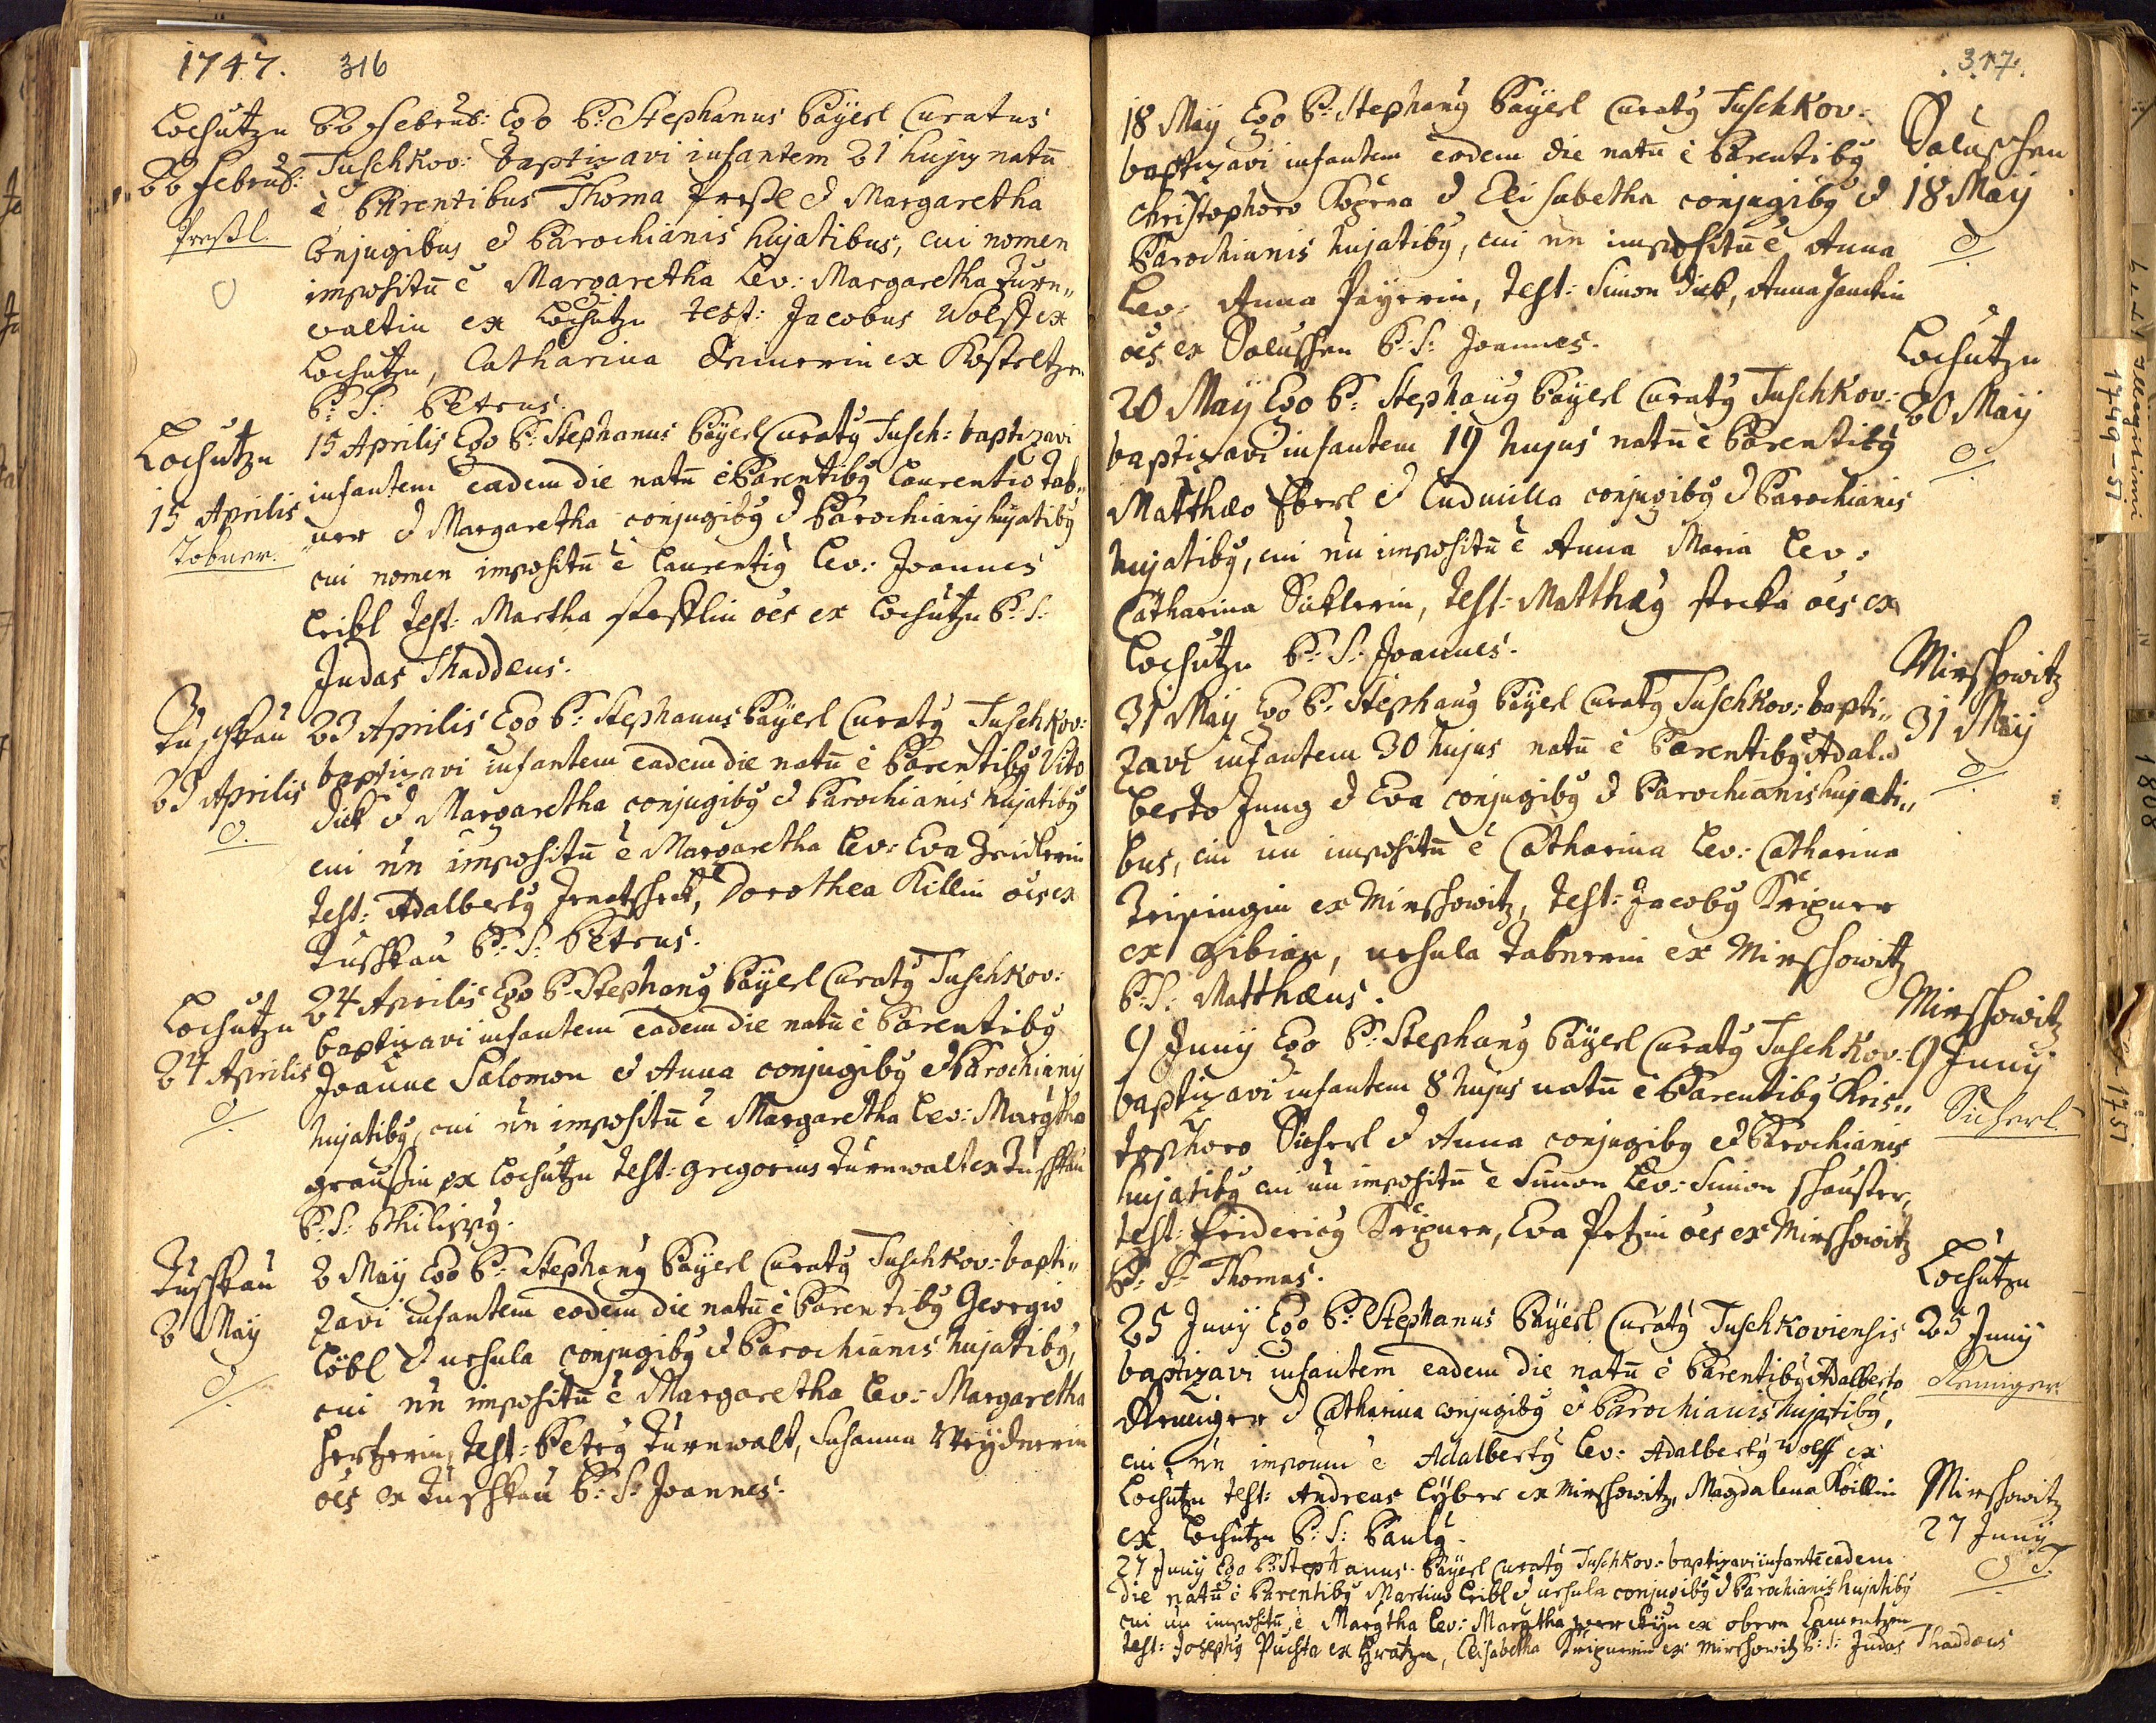 1747. 316
Lochutzn
22 Februb:
Preßl.
22 Februb: Ego P: Stephanus Payerl Curatus
Tuschkov: baptizavi infantem 21 hujus natū
è Parentibus Thoma Preßl et Margaretha
Conjugibus et Parochianis hujatibus, cui nomen
impositū ē Margaretha Lev: Margaretha Turn„
valtin ex Lochutzn Test: Jacobus Wolf ex
Lochutzn, Catharina ex Kosteltzen
P: S: Petrus.
Lochutzn
15 Aprilis
Tobner.
15 Aprilis Ego P: Stephanus Payerl Curatỹ Tusch: baptizavi
infantem eadem die natū è Parentibỹ Laurentio Tab„
ner et Margaretha conjugibỹ et Parochianis hujatibỹ
cui nomen impositū ē Laurentiỹ Lev: Joannes
Leibl Test: Martha oēs ex Lochutzn P: S:
Judas Thaddæus.
Tuschkau
23 Aprilis
23 Aprilis Ego P: Stephanus Payerl Curatỹ Tuschkov:
baptizavi infantem eadem die natū è Parentibỹ Vito
Dick et Margaretha conjugibỹ et Parochianis hujatibỹ
cui nn̄ impositū ē Margaretha Lev: Eva Zeidlerin
Test: Adalbertỹ Dorothea Killin oēs ex
Tuschkau P: S: Petrus.
Lochutzn
24 Aprilis
24 Aprilis Ego P: Stephanỹ Payerl Curatỹ Tuschkov:
baptizavi infantem eadem die natū è Parentibỹ
Joanne Salomon et Anna conjugibỹ et Parochianis
hujatibỹ, cui nn̄ impositū ē Margaretha Lev: Margtha
graußin ex Lochutzn Test: gregorius Turnwalt ex Tuschkau
P: S: Philippỹ.
Tuschkau
2 May
2 May Ego P: Stephanỹ Payerl Curatỹ Tuschkov: bapti„
zavi infantem eodem die natū è Parentibỹ Georgio
Löbl et ursula conjugibỹ et Parochianis hujatibỹ,
cui nn̄ impositū ē Margaretha Lev: Margaretha
Hertzerin, Test: Petrỹ Turnwalt, Susanna
oēs ex Tuschkau P: S: Joannes.
317.
18 May Ego P: Stephanỹ Payerl Curatỹ Tuschkov:
baptizavi infantem eodem die natū è Parentibỹ
Christophoro et Elisabetha conjugibỹ et
Parochianis hujatibỹ, cui nn̄ impositū ē Anna
Lev: Anna Payerin, Test: Simon Dick, Anna
oēs ex Saluschen P: S: Joannes.
Saluschen
18 May
20 May Ego P: Stephanỹ Payerl Curatỹ Tuschkov:
baptizavi infantem 19 hujus natū è Parentibỹ
Matthæo Eberl et Ludmilla conjugibỹ et Parochianis
hujatibỹ, cui nn̄ impositū ē Anna Maria Lev:
Catharina Sicklerin, Test: Matthæỹ Strka oēs ex
Lochutzn P: S: Joannes.
Lochutzn
20 May
31 May Ego P: Stephanỹ Payerl Curatỹ Tuschkov: bapti„
zavi infantem 30 hujus natū è Parentibỹ Adal„
berto Jung et Eva conjugibỹ et Parochianis hujati„
bus, cui nn̄ impositū ē Catharina Lev: Catharina
Zeisingin ex Mirschowitz, Test: Jacobỹ Kripner
ex gibian, ursula Tabnerin ex Mirschowitz
P: S: Matthæus.
Mirschowitz
31 May
9 Junij Ego P: Stephanỹ Payerl Curatỹ Tuschkov:
baptizavi infantem 8 hujus natū è Parentibỹ Chris„
tophoro Sicherl et Anna conjugibỹ et Parochianis
hujatibỹ cui nn̄ impositū ē Simon Lev: Simon Schuster,
Test: Fridericỹ Kripner, Eva Petzin oēs ex Mirschowitz
P: S: Thomas.
Mirschowitz
9 Junij
Sicherl.
25 Junij Ego P: Stephanus Payerl Curatỹ Tuschkoviensis
baptizavi infantem eadem die natū è Parentibỹ Adalberto
Reuniger et Catharina conjugibỹ et Parochianis hujatibỹ,
cui nn̄ ē Adalbertỹ Lev: Adalbertỹ Wolff ex
Lochutzn Test: Andreas Lyber ex Mirschowitz, Magdalena Köillin
ex Lochutzn P: S: Paulỹ.
Lochutzn
25 Junij
Reuniger.
27 Junij Ego P: Stephanus Payerl Curatỹ Tuschkov: baptizavi infantē eadem
die natū è Parentibỹ Martino Leibl et ursula conjugibỹ et Parochianis hujatibỹ
cui nn̄ impositū ē Margtha Lev: Margtha ex obern
Test: Josephỹ Puchta ex Hratzen, Elisabetha Kripnerin ex Mirschowitz P: S: Judas Thaddæus
Mirschowitz
27 Junij
1749-51
1808
1757